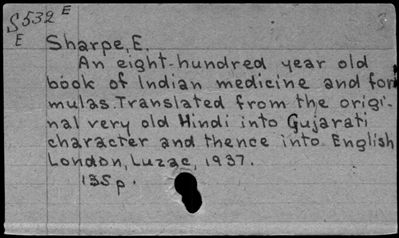 S532 E
E
Sharpe, E.
An eight-hundred year old
book of Indian medicine and for
mulas. Translated from the origi-
nal very old Hindi into Gujarati
character and thence into English
London, Luzac, 1937.
135p.